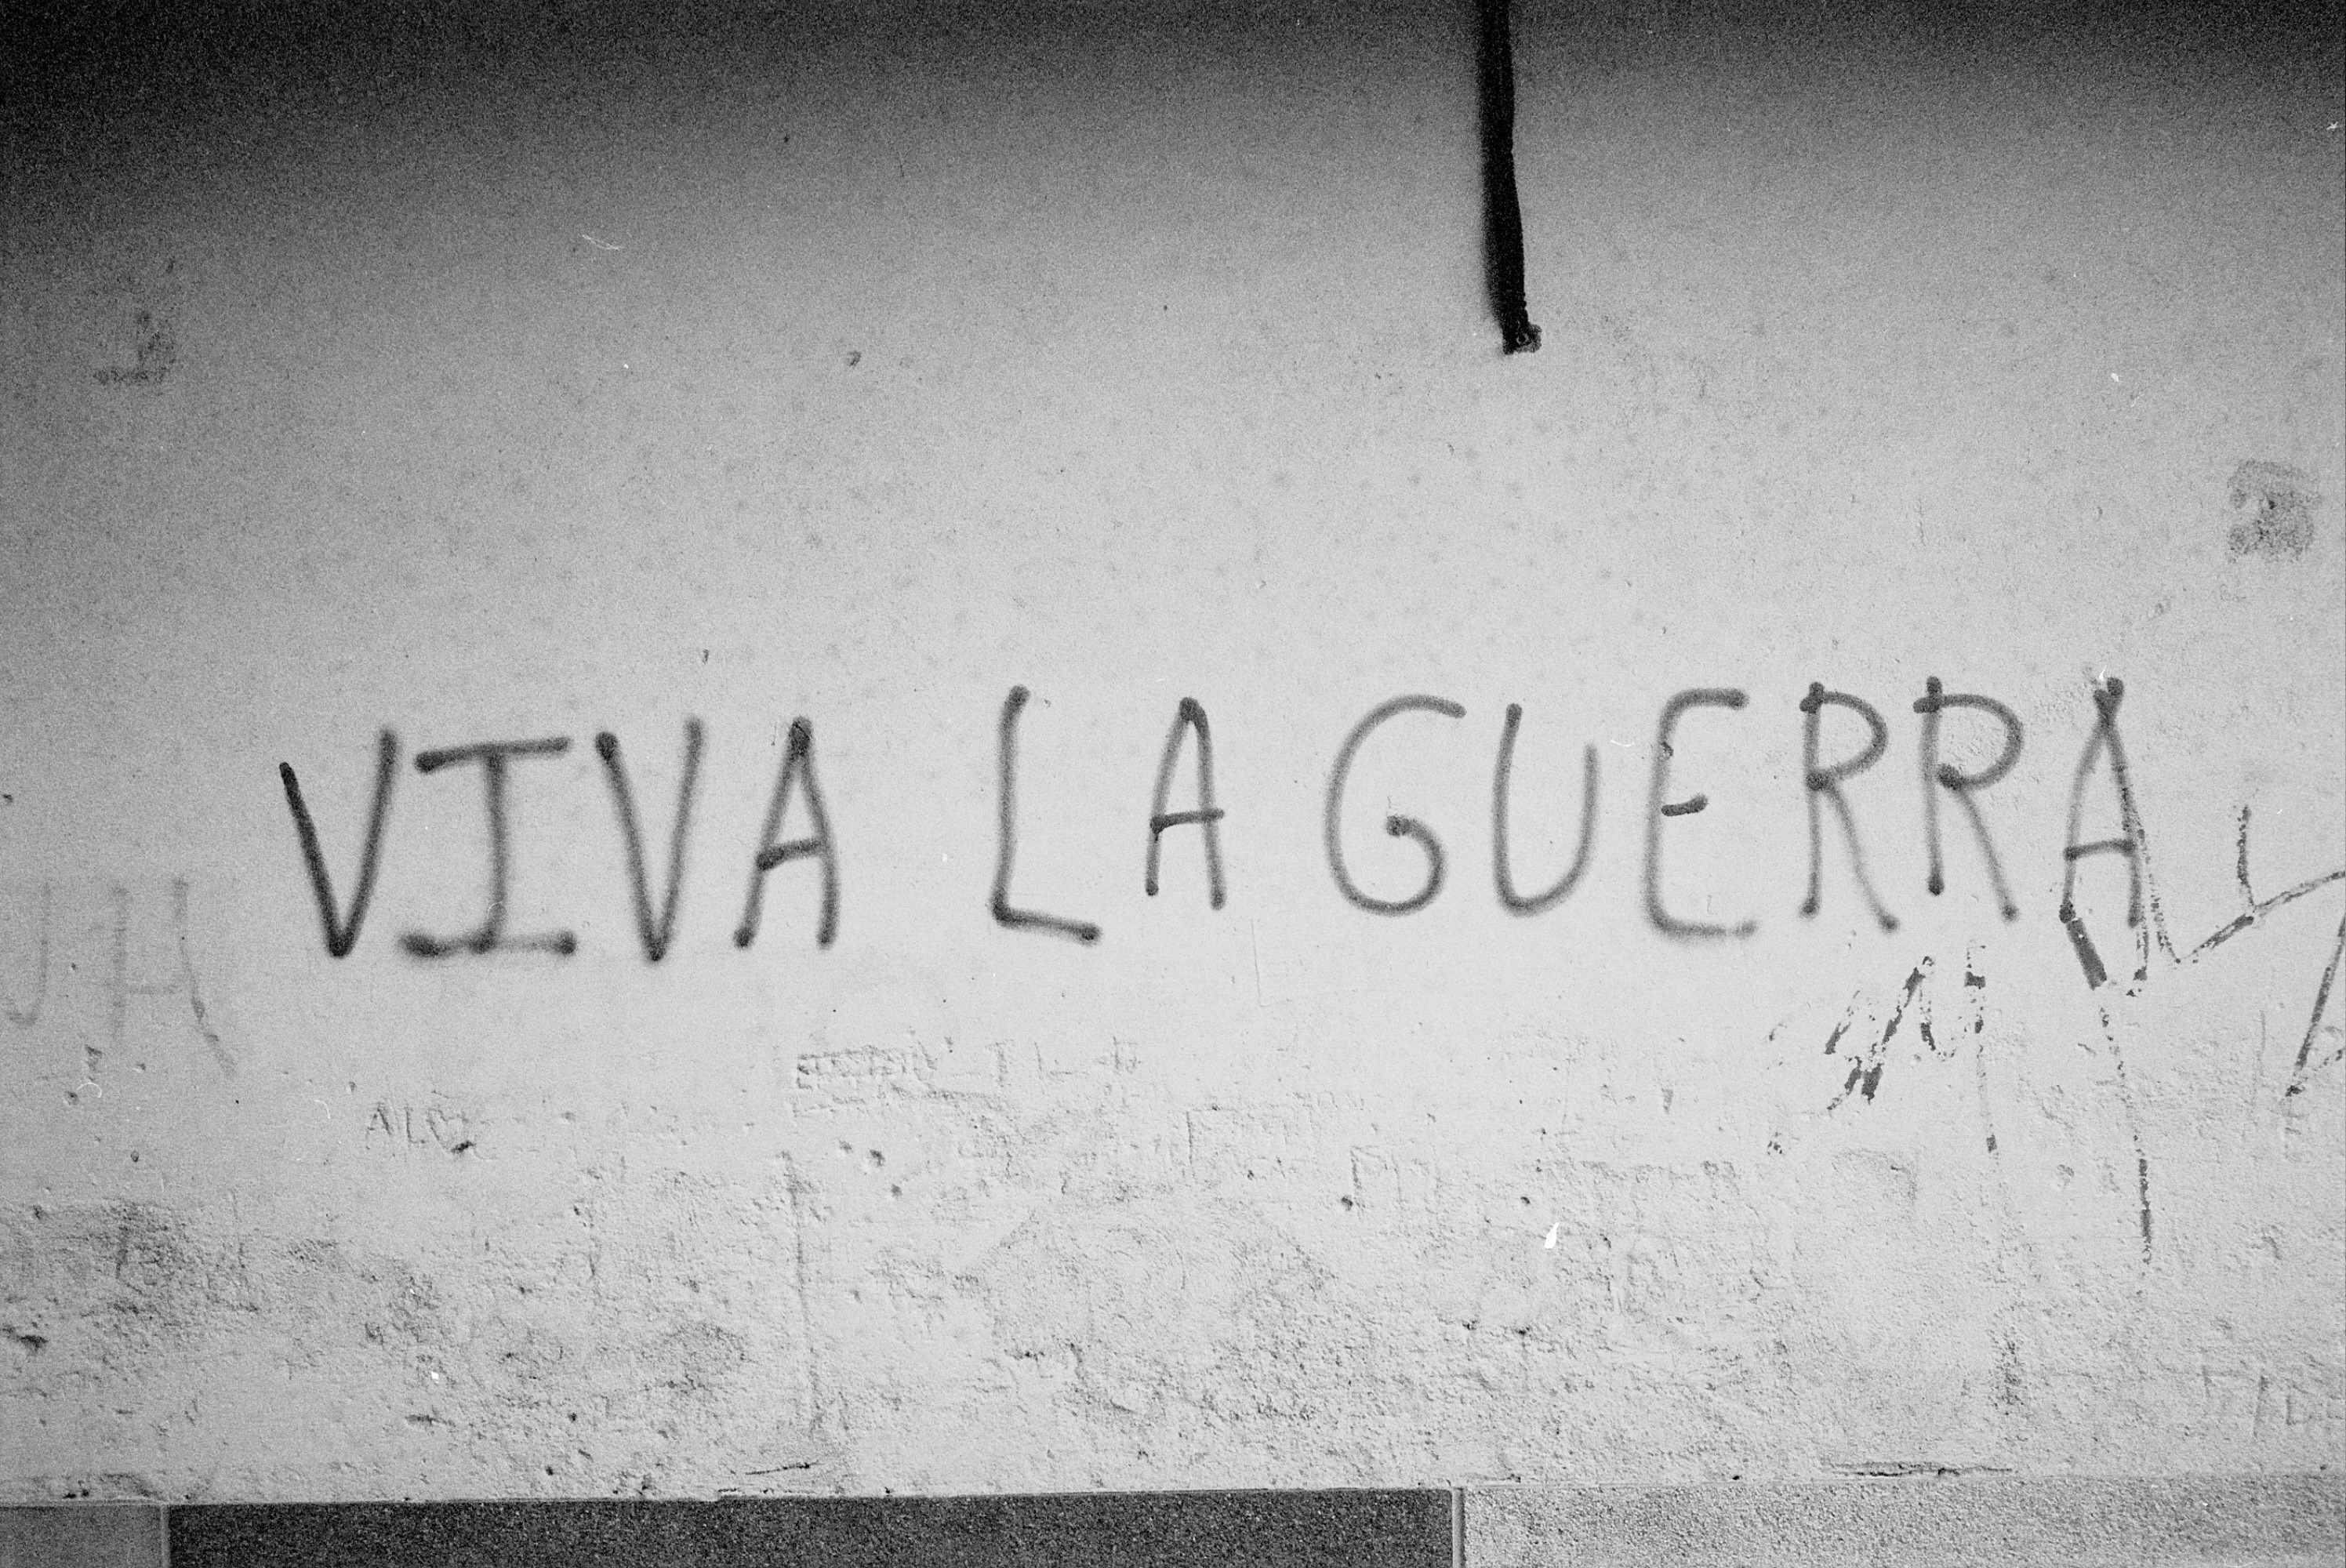 VIVA LA GUERRA